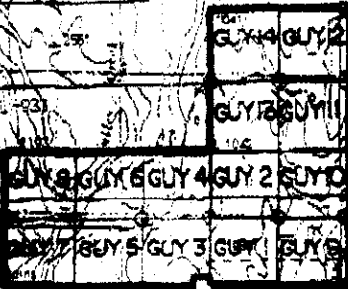 GUY 14 GUY 12
GUY 13 GUY 11
GUY 8 GUY 6 GUY 4 GUY 2 GUY 10
GUY 7 GUY 5 GUY 3 GUY 1 GUY 9